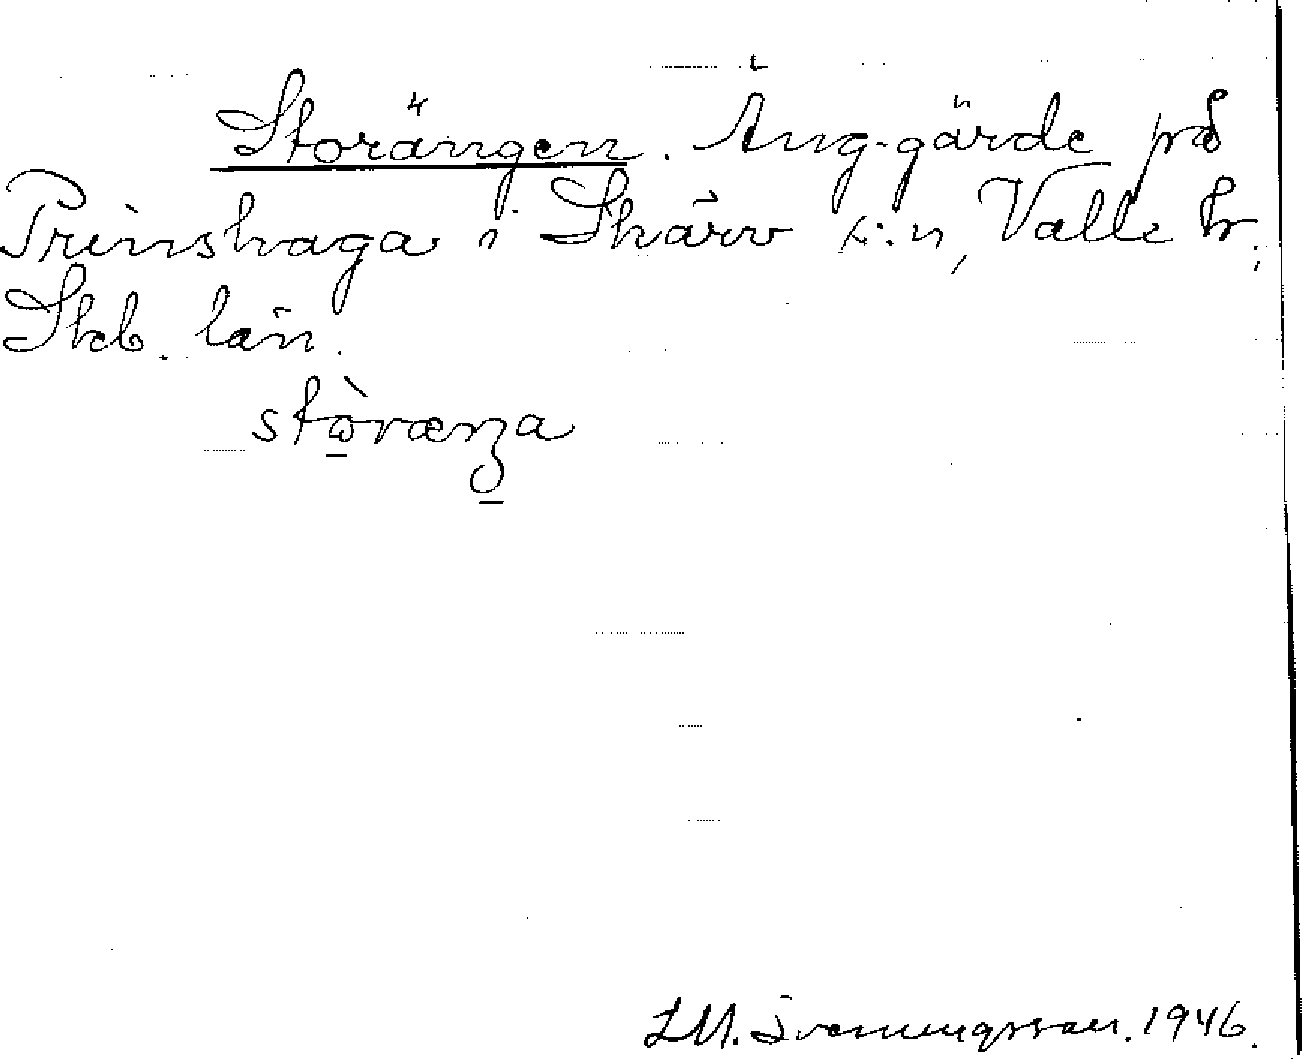 Storängen. Äng-gärde på
Prinshaga i Skärv s:n, Valle hr,
Skb. län.
stòrænȝa
L.M. Svenungsson. 1946.